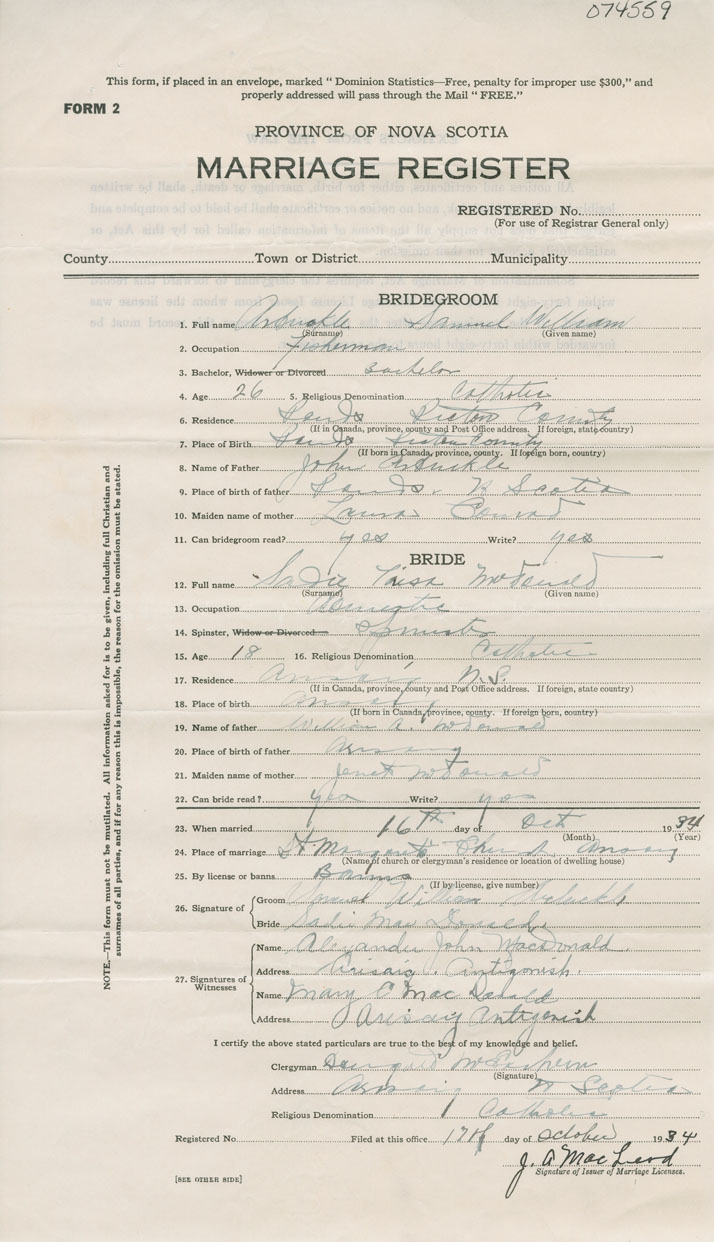 074559
This form, if placed in an envelope, marked " Dominion Statistics—Free, penalty for improper use $300," and
properly addressed will pass through the Mail " FREE."
FORM 2
PROVINCE OF NOVA SCOTIA
MARRIAGE REGISTER
REGISTERED No.
(For use of Registrar General only)
County Town or District Municipality
BRIDEGROOM
1. Full name Arbuckle Samuel William
(Surname) (Given name)
2. Occupation Fisherman
3. Bachelor, Widower or Divorced Bachelor
4. Age 26 5. Religious Denomination Catholic
6. Residence Pictou County
(If in Canada, province, county and Post Office address. If foreign, state country)
7. Place of Birth Pictou County
(If born in Canada, province, county. If foreign born, country)
8. Name of Father John Arbuckle
9. Place of birth of father N Scotia
10. Maiden name of mother Laura Conrad
11. Can bridegroom read? yes Write? yes
BRIDE
12. Full name Sadie McDonald
(Surname) (Given name)
13. Occupation Domestic
14. Spinster, Widow or Divorced Spinster
15. Age 18 16. Religious Denomination Catholic
17. Residence Arisaig N.S.
(If in Canada, province, county and Post Office address. If foreign, state country)
18. Place of birth Arisaig
(If born in Canada, province, county. If foreign born, country)
19. Name of father William A. McDonald
20. Place of birth of father Arisaig
21. Maiden name of mother Janet McDonald
22. Can bride read? yes Write? yes
23. When married 16th day of Oct 1934
(Month) (Year)
24. Place of marriage St. Margaret's Church Arisaig
(Name of church or clergyman's residence or location of dwelling house)
25. By license or banns Banns
(If by license, give number)
26. Signature of
Groom Samuel William Arbuckle
Bride Sadie MacDonald
27. Signatures of Witnesses
Name Alexander John Macdonald.
Address Arisaig. Antigonish.
Name Mary C MacDonald
Address Arisaig Antigonish
I certify the above stated particulars are true to the best of my knowledge and belief.
Clergyman
(Signature)
Address Arisaig N Scotia
Religious Denomination Catholic
Registered No. Filed at this office 17th day of October 1934
J. A MacLeod
Signature of Issuer of Marriage Licenses.
[SEE OTHER SIDE]
NOTE.—This form must not be mutilated. All information asked for is to be given, including full Christian and
surnames of all parties, and if for any reason this is impossible, the reason for the omission must be stated.